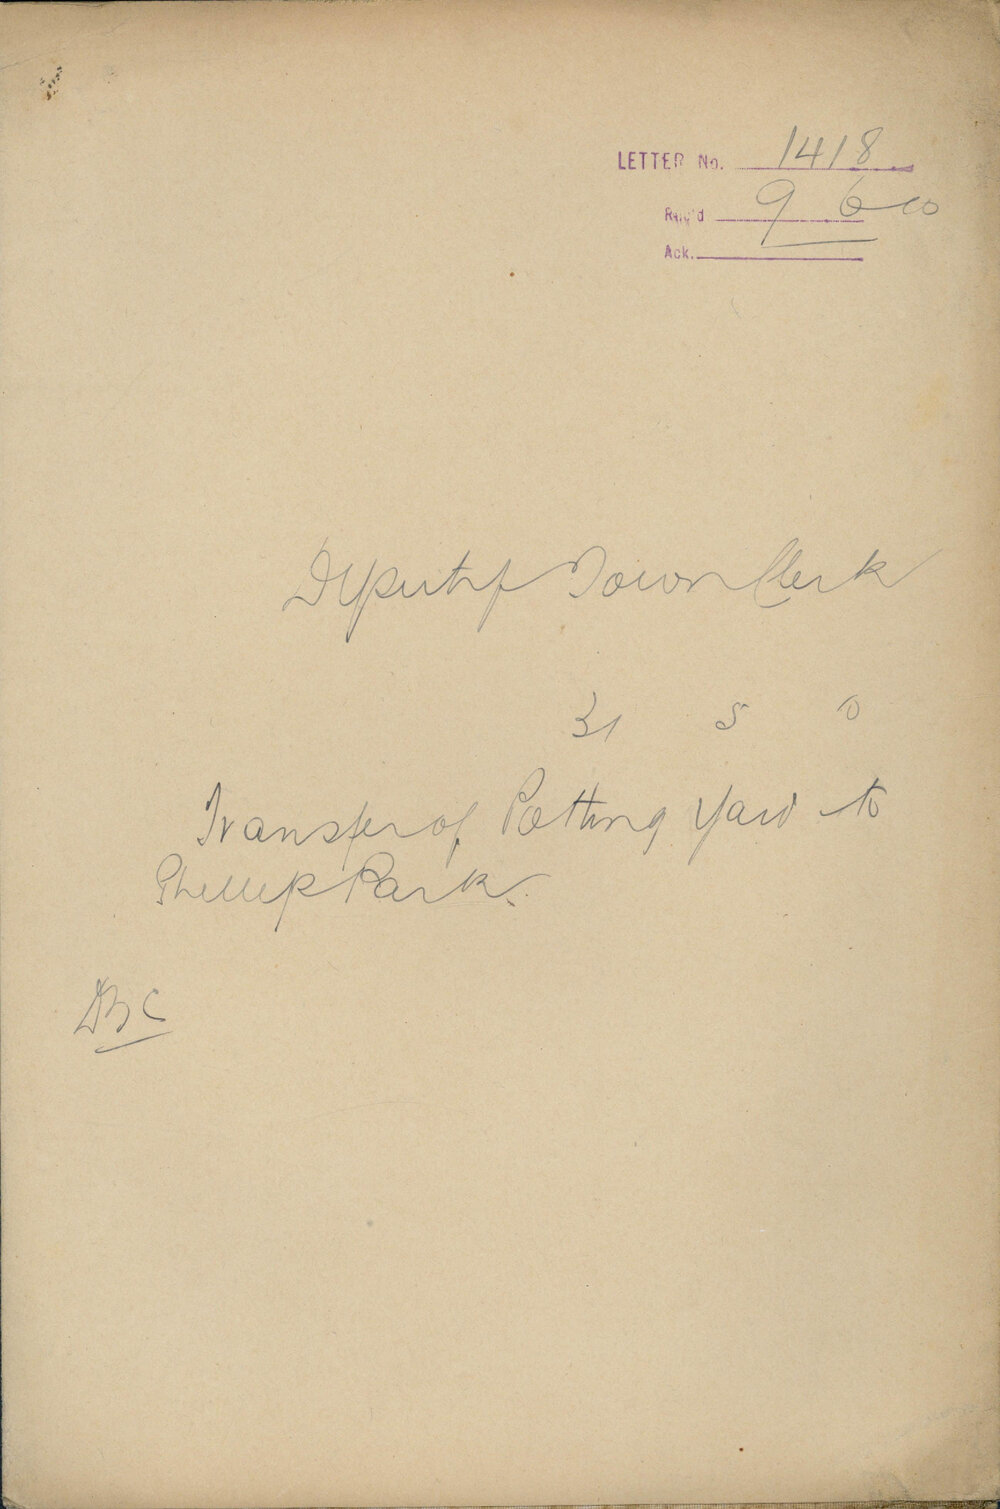 LETTER No. 1418
Rec'd 9 6
Ack.
Deputy Town Clerk
31 5 0
Transfer of Potting Yard to
Phillip Park.